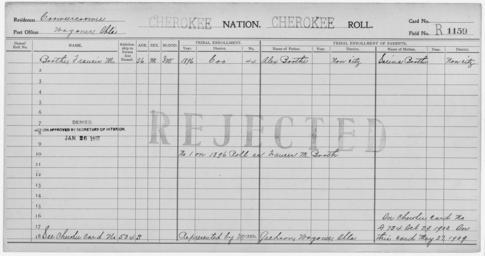 Residence Cooweescoowee
Post Office Wagoner Okla.
CHEROKEE NATION. CHEROKEE ROLL.
Card No.
Field No. R 1159
Dawes' Roll No. NAME. Relationship to Person first Named AGE. SEX. BLOOD. TRIBAL ENROLLMENT. TRIBAL ENROLLMENT OF PARENTS.
Year. District. No. Name of Father. Year. District. Name of Mother. Year. District.
1 Boothe Francis M. 56 M IW 1896 Coo Alex Boothe Non citz Serena Boothe Non citz
2
3
4
5
6
7
DENIED
8
UPON APPROVED BY SECRETARY OF INTERIOR
JAN 26 1907
REJECTED
9
10 No 1 on 1896 Roll as Francis M. Booth
11
12
13
14
15
16 See Cherokee Card No
17 Oct 23 1902
18 See Cherokee Card No. Represented by Jackson, Wagoner Okla. this card May 27, 1909